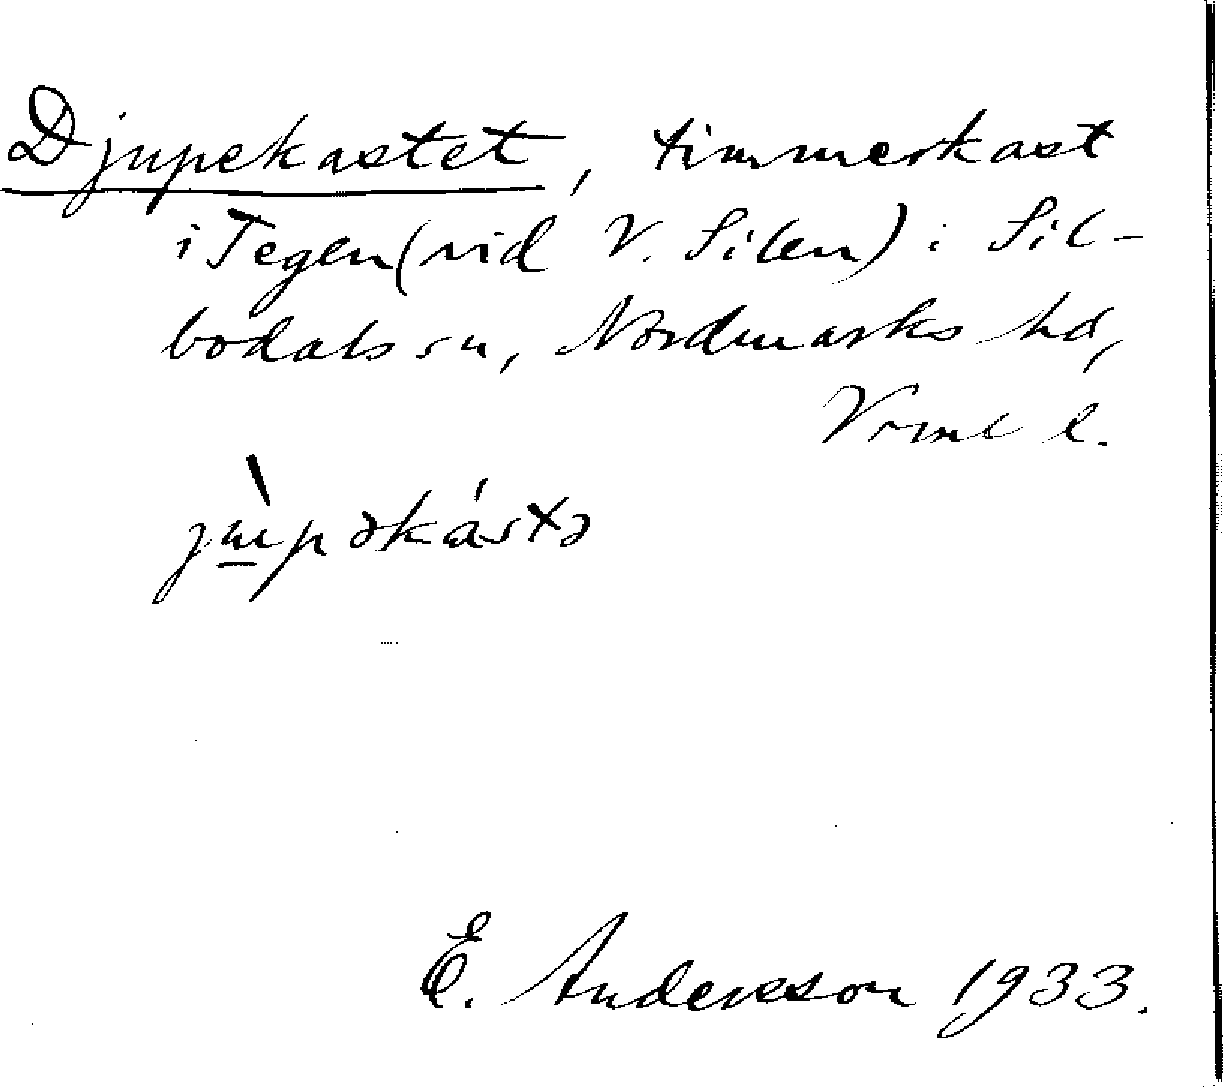 Djupekastet, timmerkast
i Tegen (vid V. Silen) i Sil-
bodals sn, Nordmarks hd,
Vrml l.
jɯ̀pəkástə
E. Andersson 1933.